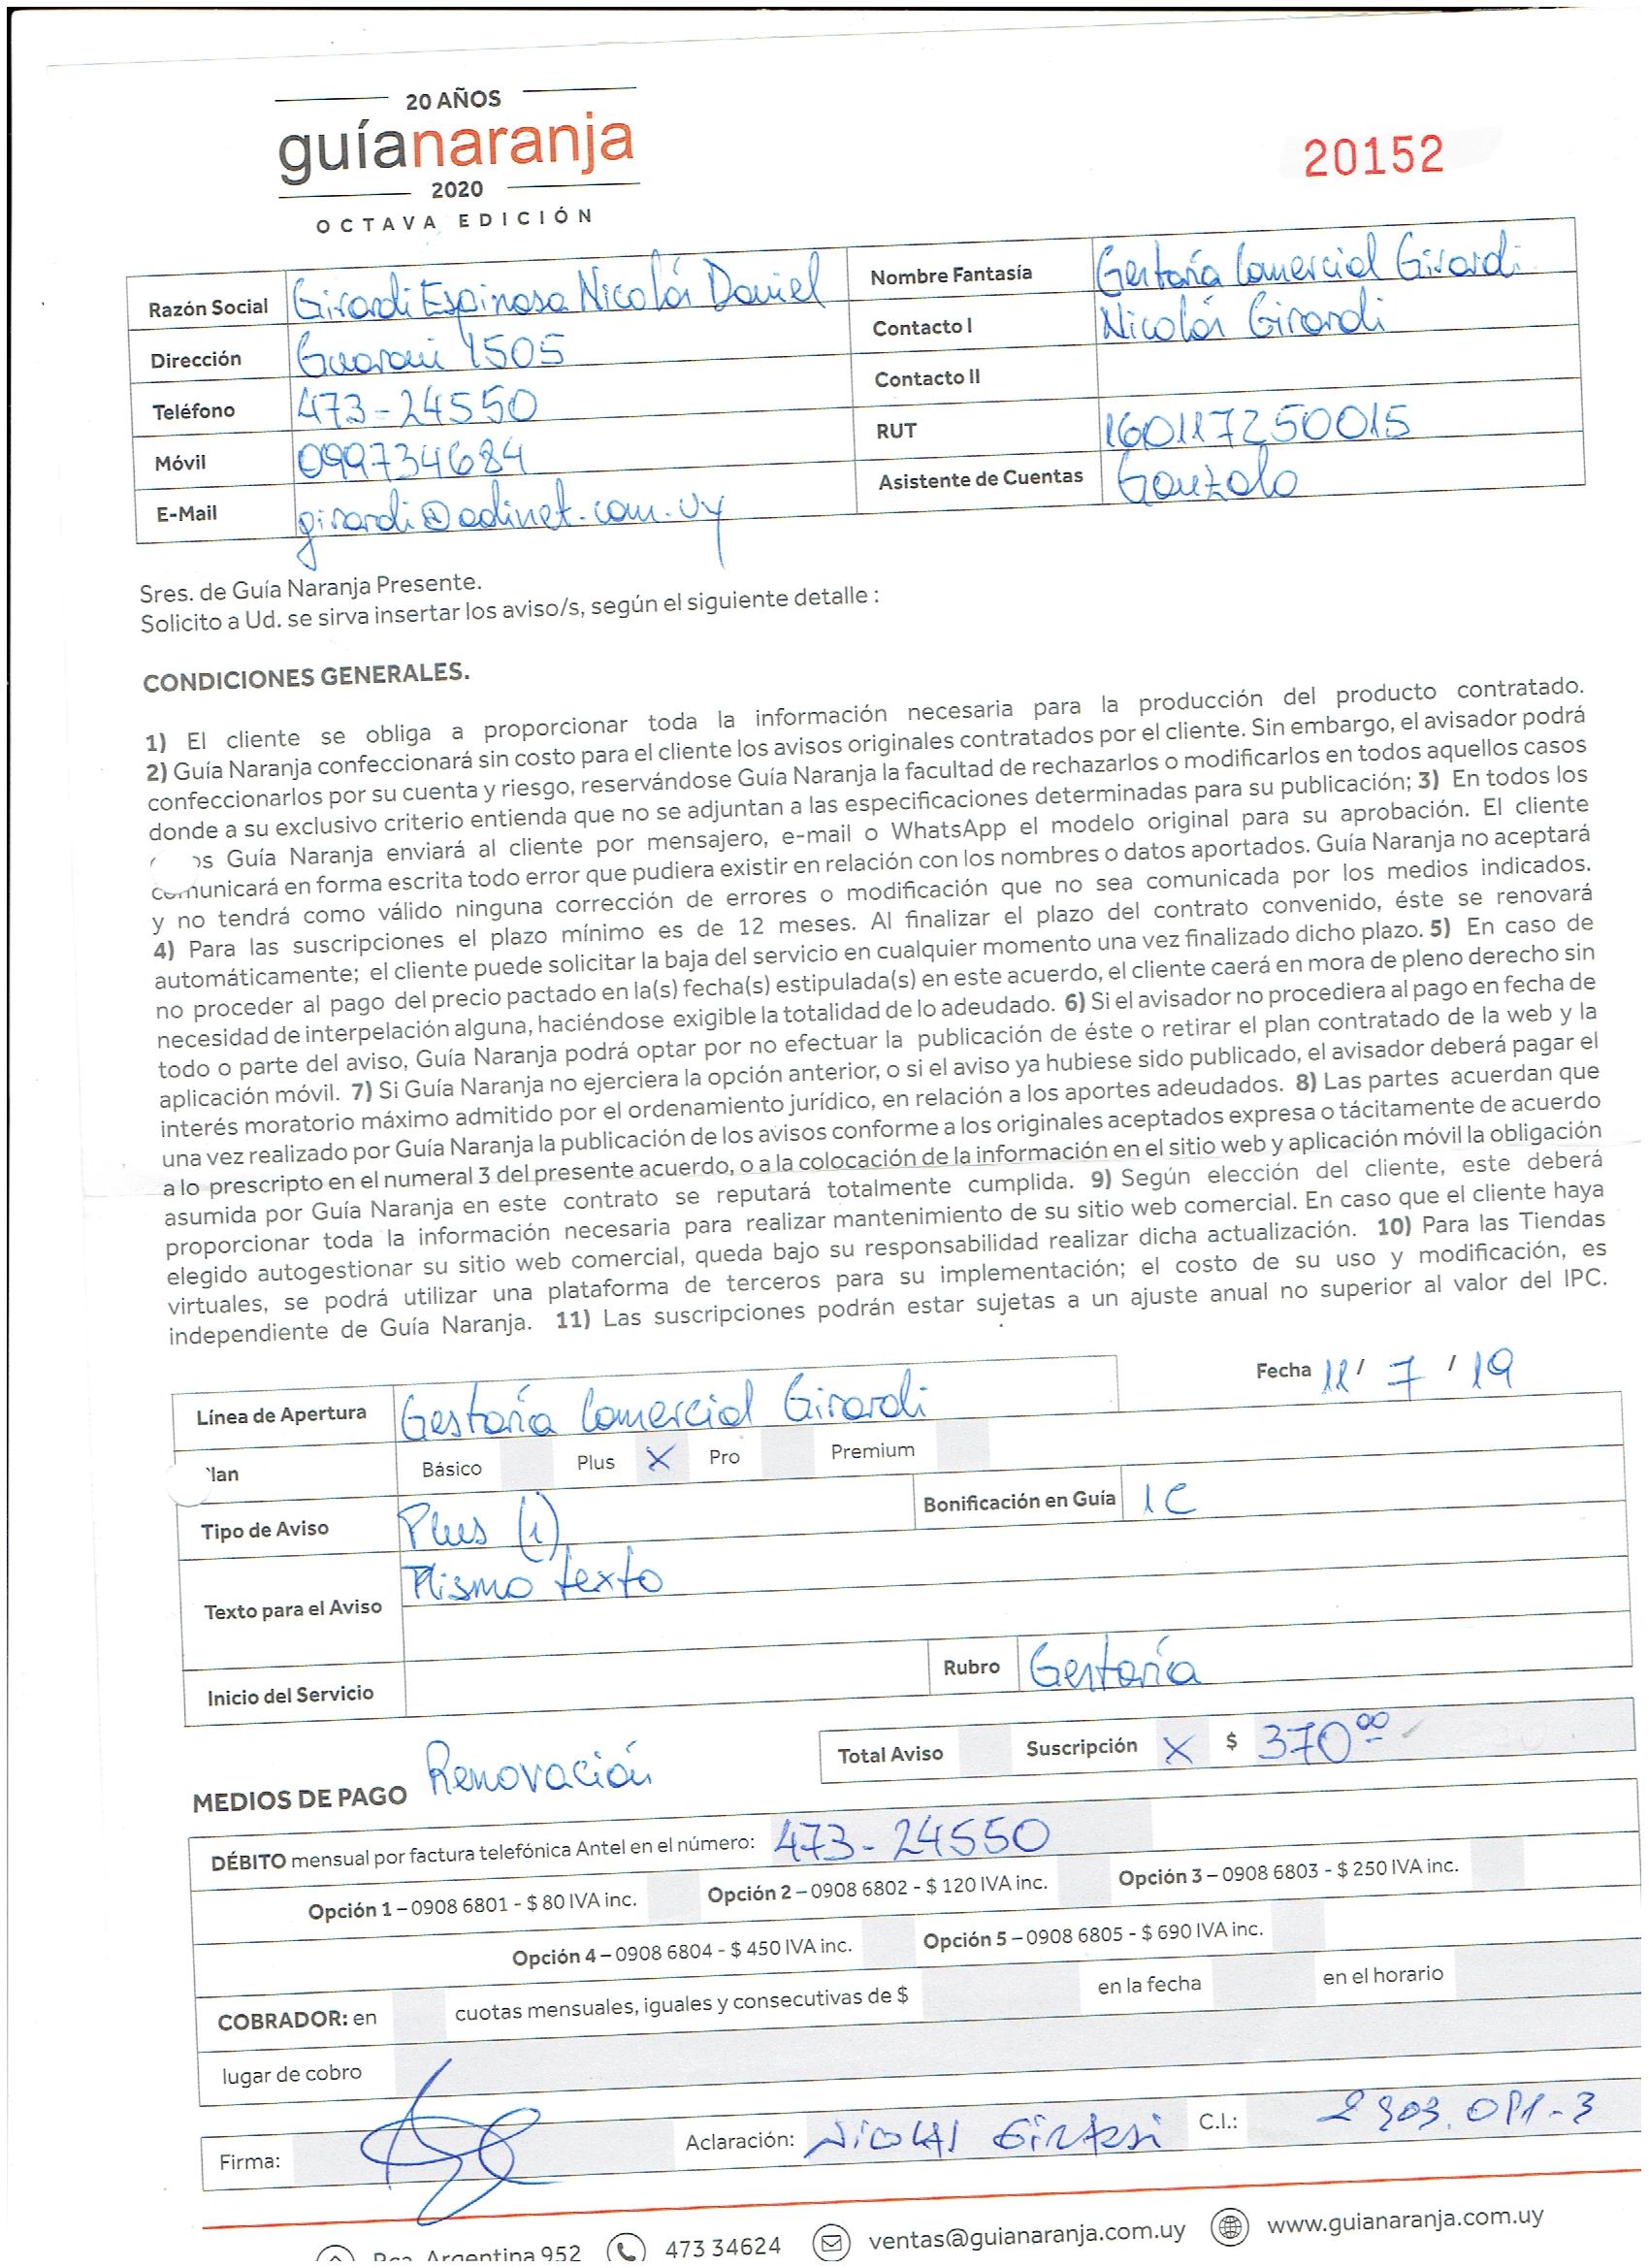 20 AÑOS
guíanaranja
2020
OCTAVA EDICIÓN
20152
Razón Social Girardi Espinosa Nicolás Daniel
Nombre Fantasía Gestoría Comercial Girardi
Dirección Guaraní 1505
Contacto I Nicolás Girardi
Teléfono 473-24550
Contacto II
Móvil 099734684
RUT 160117250015
E-Mail girardi@adinet.com.uy
Asistente de Cuentas Gonzalo
Sres. de Guía Naranja Presente.
Solicito a Ud. se sirva insertar los aviso/s, según el siguiente detalle :
CONDICIONES GENERALES.
1) El cliente se obliga a proporcionar toda la información necesaria para la producción del producto contratado.
2) Guía Naranja confeccionará sin costo para el cliente los avisos originales contratados por el cliente. Sin embargo, el avisador podrá
confeccionarlos por su cuenta y riesgo, reservándose Guía Naranja la facultad de rechazarlos o modificarlos en todos aquellos casos
donde a su exclusivo criterio entienda que no se adjuntan a las especificaciones determinadas para su publicación; 3) En todos los
Guía Naranja enviará al cliente por mensajero, e-mail o WhatsApp el modelo original para su aprobación. El cliente
comunicará en forma escrita todo error que pudiera existir en relación con los nombres o datos aportados. Guía Naranja no aceptará
y no tendrá como válido ninguna corrección de errores o modificación que no sea comunicada por los medios indicados.
4) Para las suscripciones el plazo mínimo es de 12 meses. Al finalizar el plazo del contrato convenido, éste se renovará
automáticamente; el cliente puede solicitar la baja del servicio en cualquier momento una vez finalizado dicho plazo. 5) En caso de
no proceder al pago del precio pactado en la(s) fecha(s) estipulada(s) en este acuerdo, el cliente caerá en mora de pleno derecho sin
necesidad de interpelación alguna, haciéndose exigible la totalidad de lo adeudado. 6) Si el avisador no procediera al pago en fecha de
todo o parte del aviso, Guía Naranja podrá optar por no efectuar la publicación de éste o retirar el plan contratado de la web y la
aplicación móvil. 7) Si Guía Naranja no ejerciera la opción anterior, o si el aviso ya hubiese sido publicado, el avisador deberá pagar el
interés moratorio máximo admitido por el ordenamiento jurídico, en relación a los aportes adeudados. 8) Las partes acuerdan que
una vez realizado por Guía Naranja la publicación de los avisos conforme a los originales aceptados expresa o tácitamente de acuerdo
a lo prescripto en el numeral 3 del presente acuerdo, o a la colocación de la información en el sitio web y aplicación móvil la obligación
asumida por Guía Naranja en este contrato se reputará totalmente cumplida. 9) Según elección del cliente, este deberá
proporcionar toda la información necesaria para realizar mantenimiento de su sitio web comercial. En caso que el cliente haya
elegido autogestionar su sitio web comercial, queda bajo su responsabilidad realizar dicha actualización. 10) Para las Tiendas
virtuales, se podrá utilizar una plataforma de terceros para su implementación; el costo de su uso y modificación, es
independiente de Guía Naranja. 11) Las suscripciones podrán estar sujetas a un ajuste anual no superior al valor del IPC.
Fecha 11 / 7 / 19
Línea de Apertura Gestoría Comercial Girardi
lan Básico Plus X Pro Premium
Tipo de Aviso Plus (1) Bonificación en Guía 1C
Texto para el Aviso Mismo texto
Inicio del Servicio Rubro Gestoría
Total Aviso Suscripción X $ 370.00
MEDIOS DE PAGO Renovación
DÉBITO mensual por factura telefónica Antel en el número: 473-24550
Opción 1 – 0908 6801 - $ 80 IVA inc. Opción 2 – 0908 6802 - $ 120 IVA inc. Opción 3 – 0908 6803 - $ 250 IVA inc.
Opción 4 – 0908 6804 - $ 450 IVA inc. Opción 5 – 0908 6805 - $ 690 IVA inc.
COBRADOR: en cuotas mensuales, iguales y consecutivas de $ en la fecha en el horario
lugar de cobro
Firma: Aclaración: Nicolas Girardi C.I.:
Argentina 952 473 34624 ventas@guianaranja.com.uy www.guianaranja.com.uy